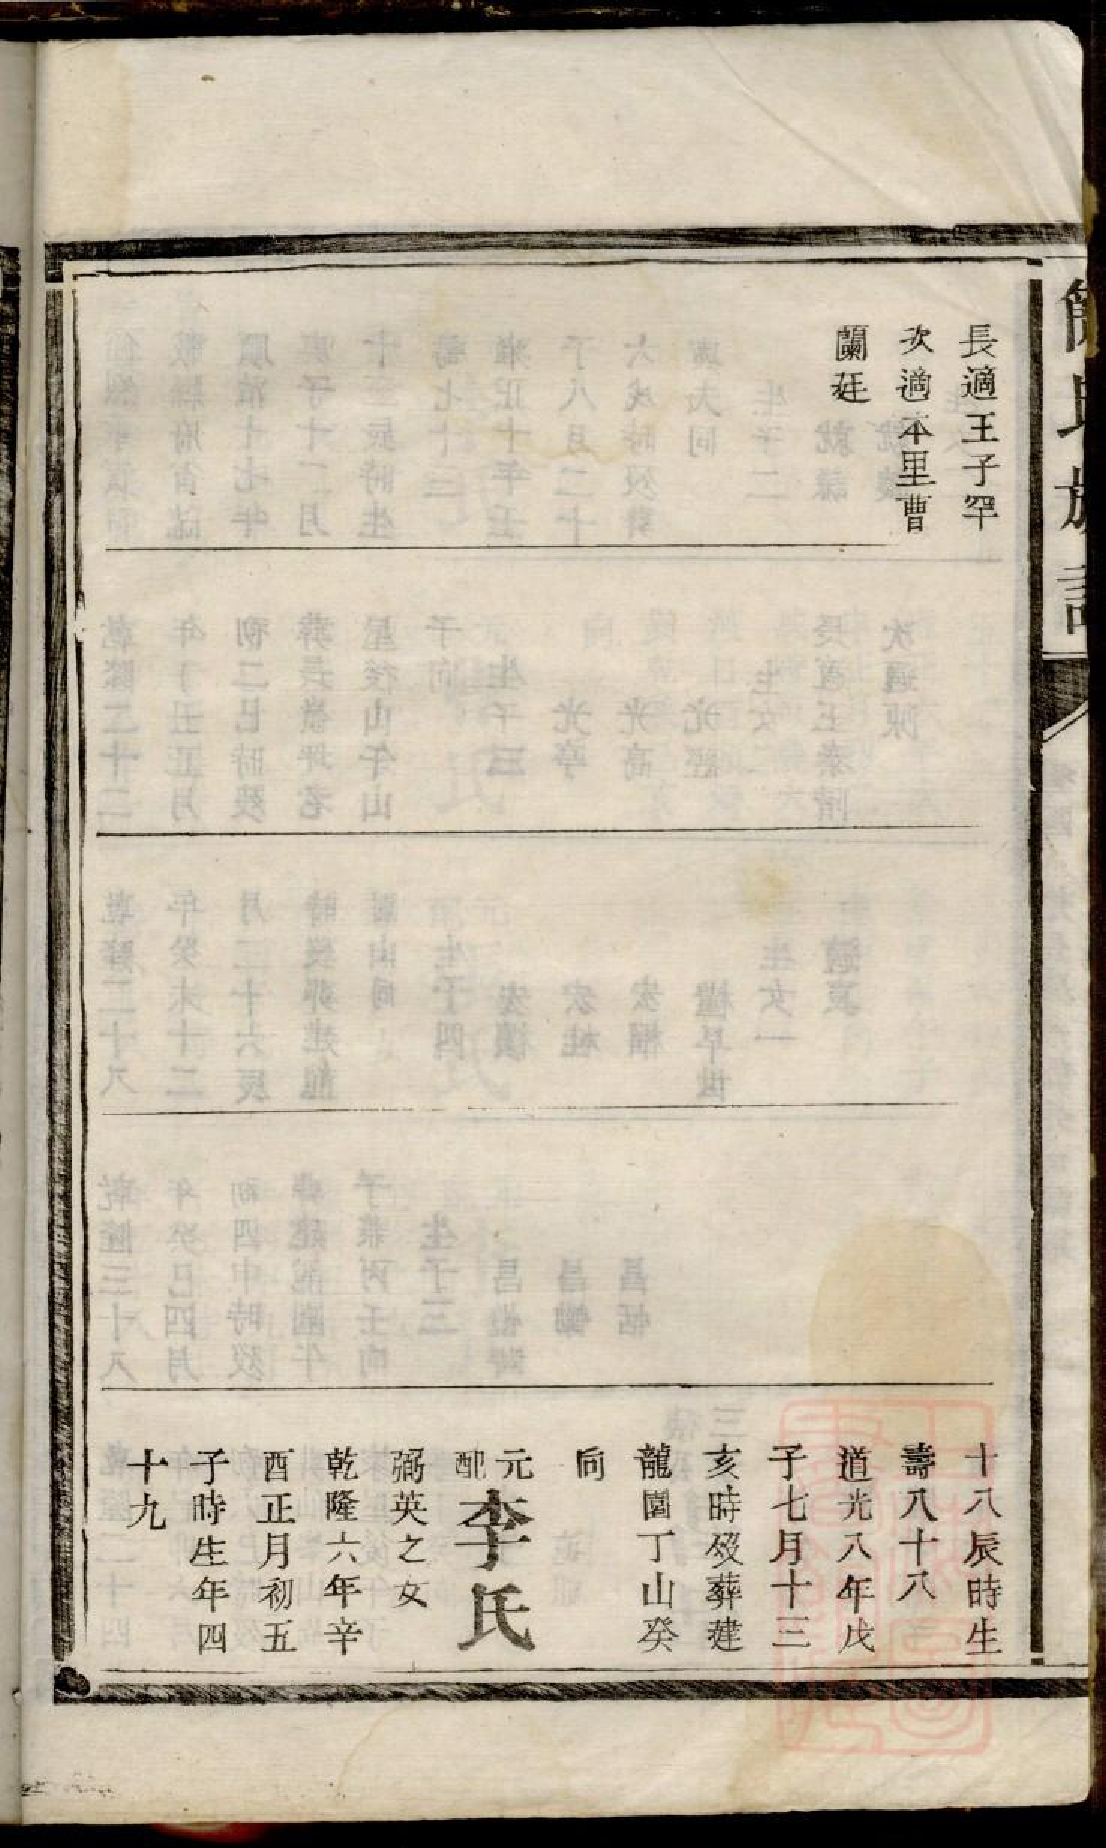 簡氏族譜
長適王子罕
次適本里曹
蘭廷
十八辰時生
壽八十八
道光八年戊
子七月十三
亥時歿葬建
龍園丁山癸
向
元配李氏
弼英之女
乾隆六年辛
酉正月初五
子時生年四
十九